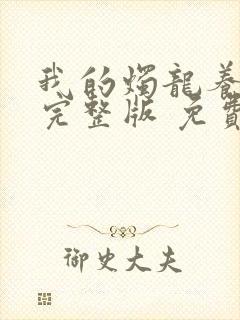 我的燭龍養
完整版 免費
御史大夫